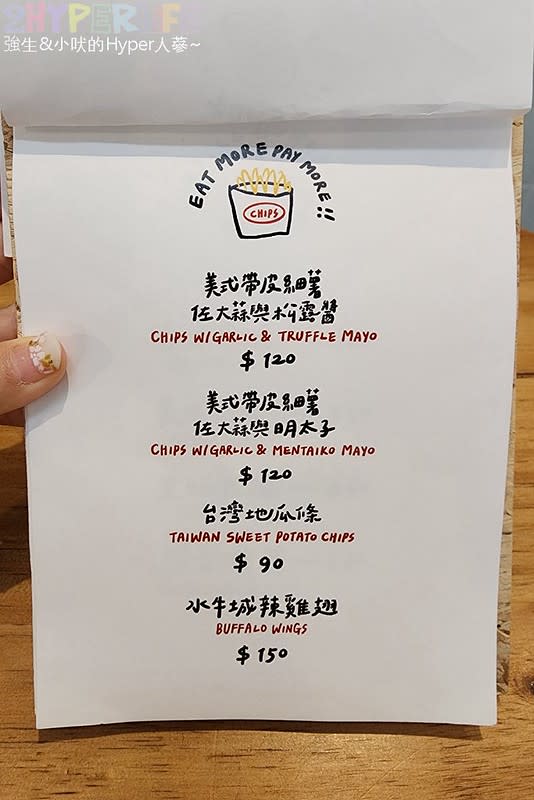 HYPER LIFE
強生&小吠的Hyper人蔘~
EAT MORE PAY MORE!!
CHIPS
美式帶皮細薯
佐大蒜與松露醬
CHIPS W/GARLIC & TRUFFLE MAYO
$ 120
美式帶皮細薯
佐大蒜與明太子
CHIPS W/GARLIC & MENTAIKO MAYO
$ 120
台灣地瓜條
TAIWAN SWEET POTATO CHIPS
$ 90
水牛城辣雞翅
BUFFALO WINGS
$ 150